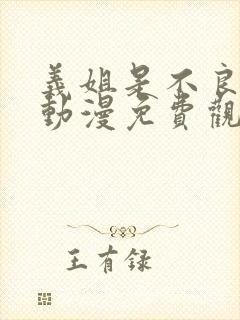 義姐是不良
動漫免費觀
王有録